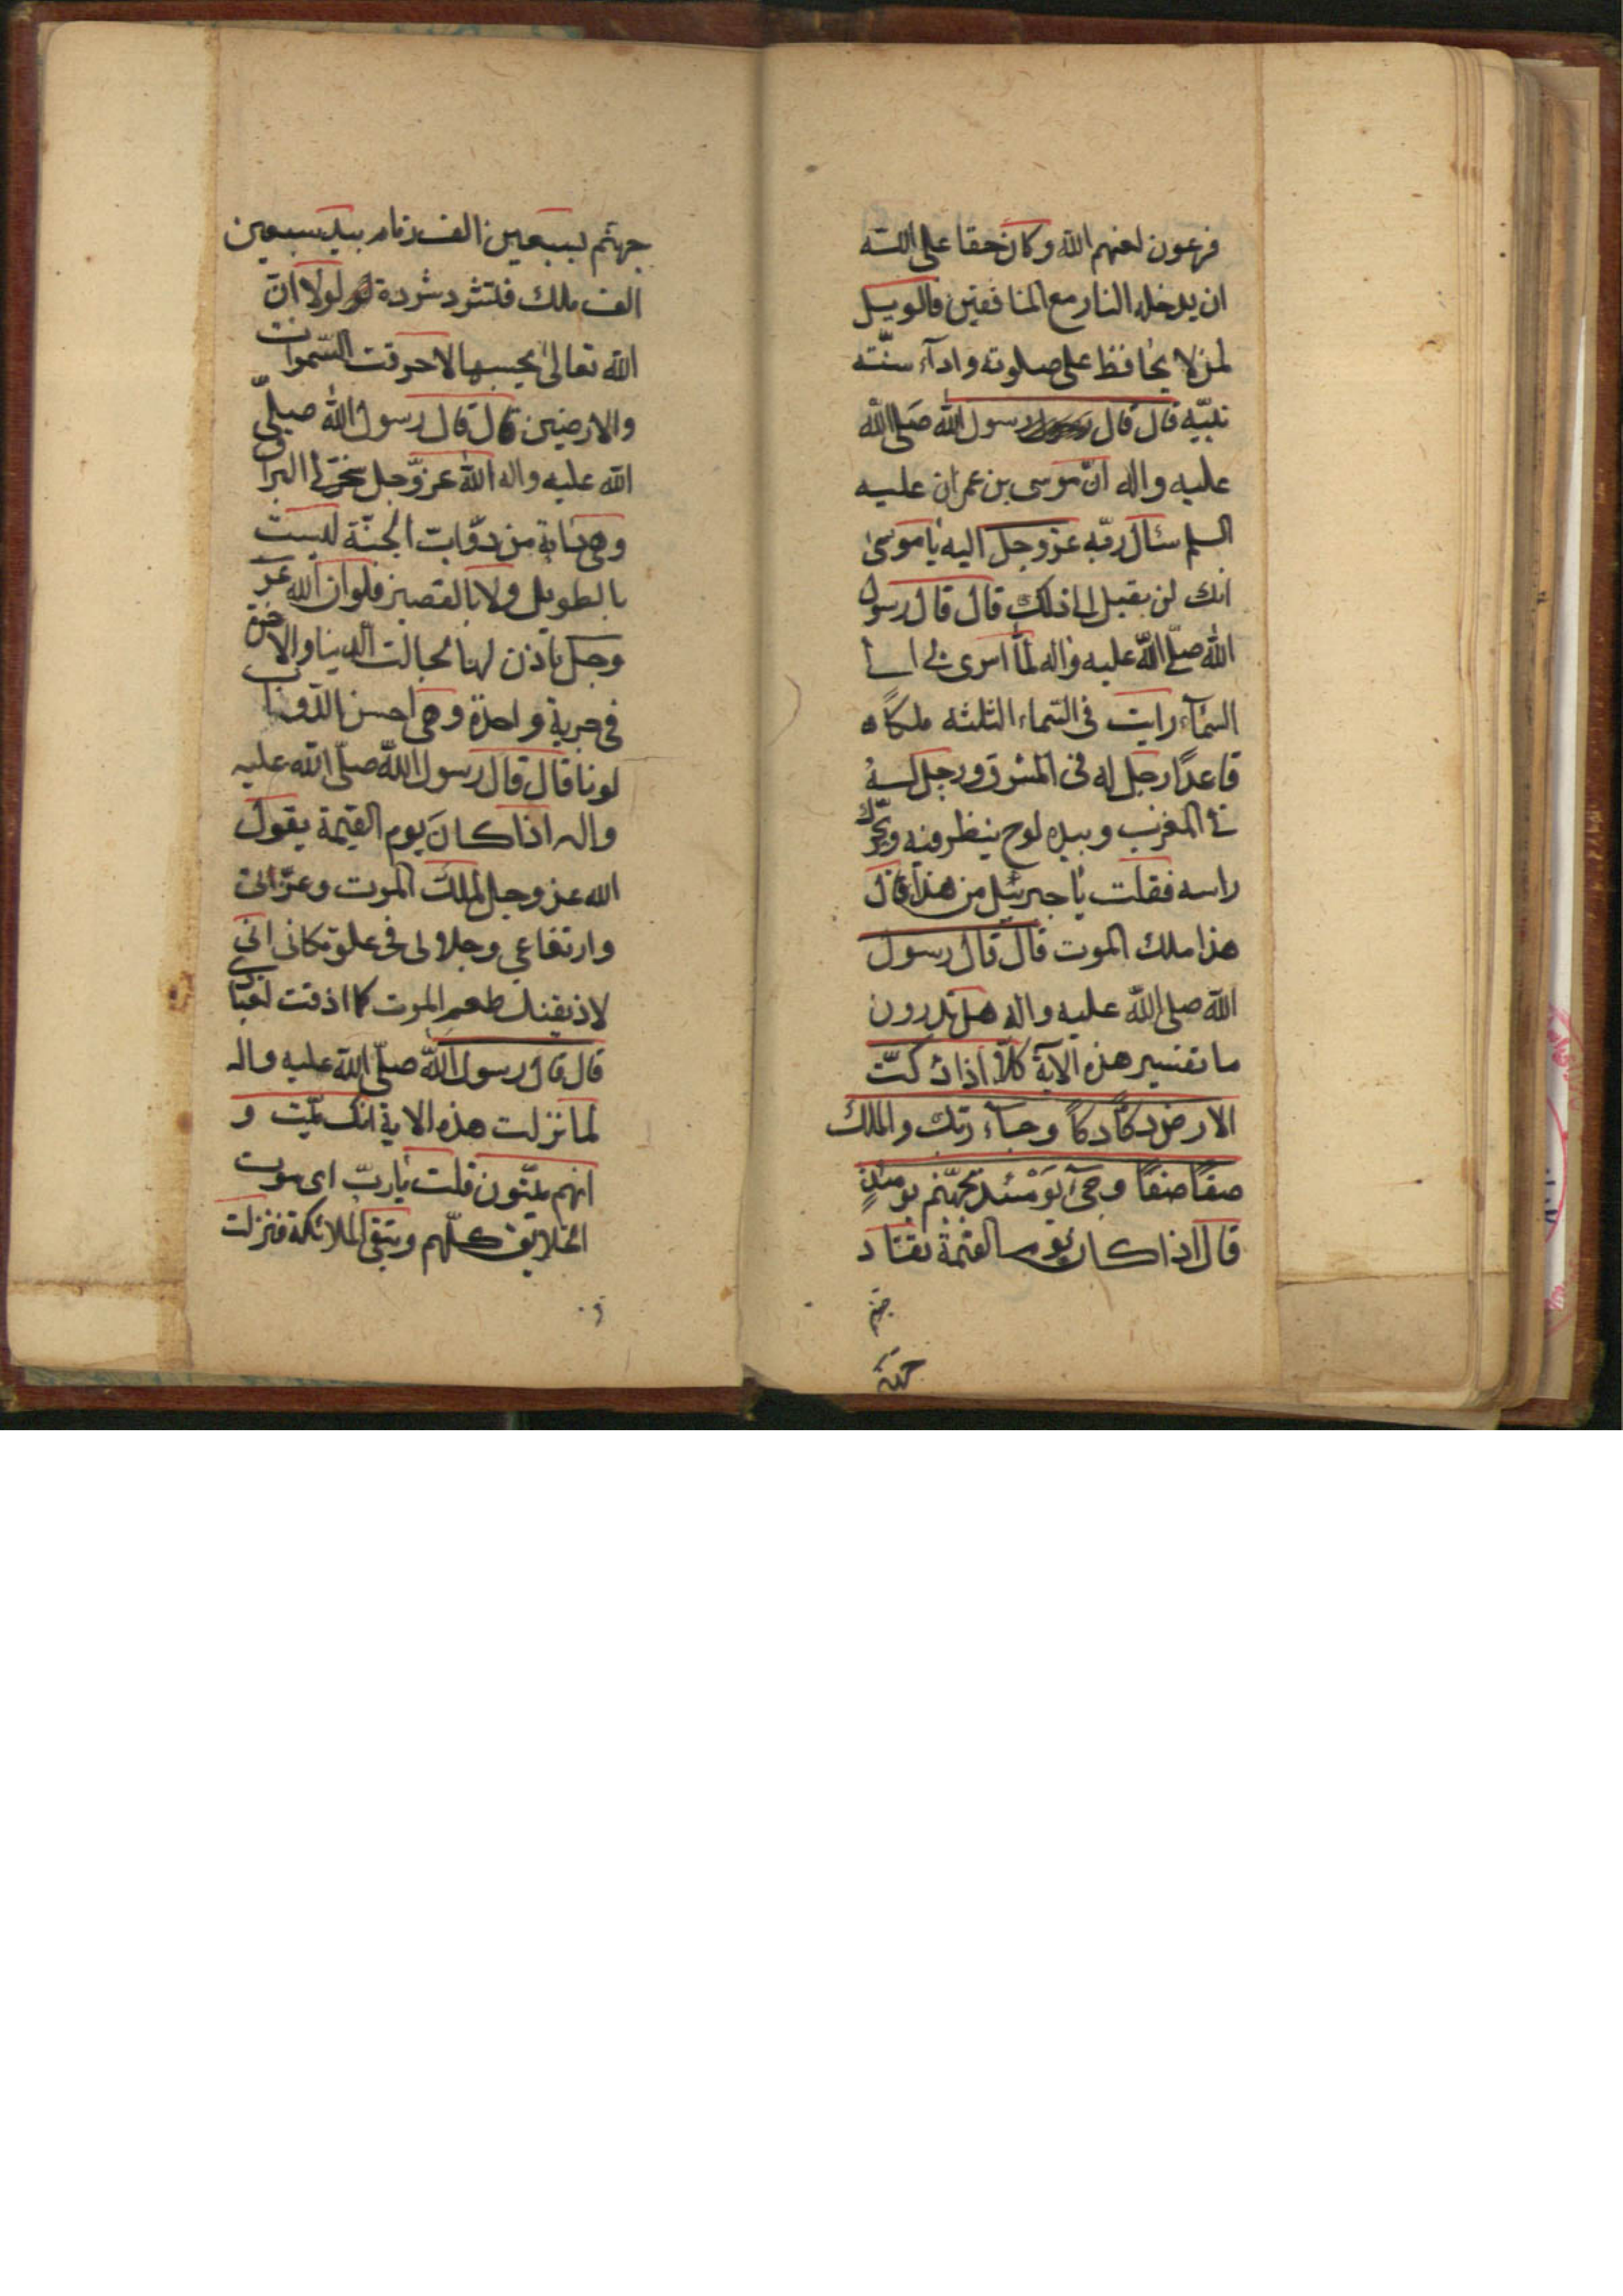 فرعون لعنهم الله وكان حقا على الله
ان يدخله النار مع المنافقين فالويل
لمن لا يحافظ على صلوته واداء سنّة
نبيّه قال قال رسول الله صلى الله
عليه واله انّ موسى بن عمران عليه
السلم سئال ربّه عز وجل اليه يا موسى
انك لن يقبل الى ذلك قال قال رسول
الله صلّى الله عليه واله لمّا اسرى بى الى
السّمآء رايت فى السّماء الثلثه ملكاً
قاعداً رجل له فى المشرق ورجل له
فى المغرب وبيده لوح ينظر فيه ويحرّك
راسه فقلت يا جبرئيل من هذا قال
هذا ملك الموت قال قال رسول
الله صلى الله عليه واله هل تدرون
ما تفسير هذه الآية كلّا اذا دكّت
الارض دكاً دكاً وجاء ربّك والملك
صفّاً صفّاً وجىء يومئذ بجهنّم يومئذٍ
قال اذا كان يوم القيمة تقتاد
جهنم
جهنم بسبعين الف زمام بيد سبعين
الف ملك فلتشرد شردة لولا انّ
الله تعالى يحبسها لاحرقت السّموات
والارضين قال قال رسول الله صلّى
الله عليه واله الله عزّ وجل سخّر لى البراق
وهى دابة من دوّابّ الجنّة ليست
بالطويل ولا بالقصير فلو ان الله عزّ
وجل ياذن لها لجالت الدنيا والاخرة
فى جرية واحدة وهى احسن الدّوابّ
لونا قال قال رسول الله صلّى الله عليه
واله اذا كان يوم القيمة يقول
الله عز وجل لملك الموت وعزّتى
وارتفاعى وجلالى فى علوّ مكانى انّى
لاذيقنك طعم الموت كما اذقت لعبادى
قال قال رسول الله صلّى الله عليه واله
لما نزلت هذه الاية انك ميّت و
انهم ميّتون قلت يا ربّ اى موت
الخلايق كلّهم وتبقى الملائكة فنزلت